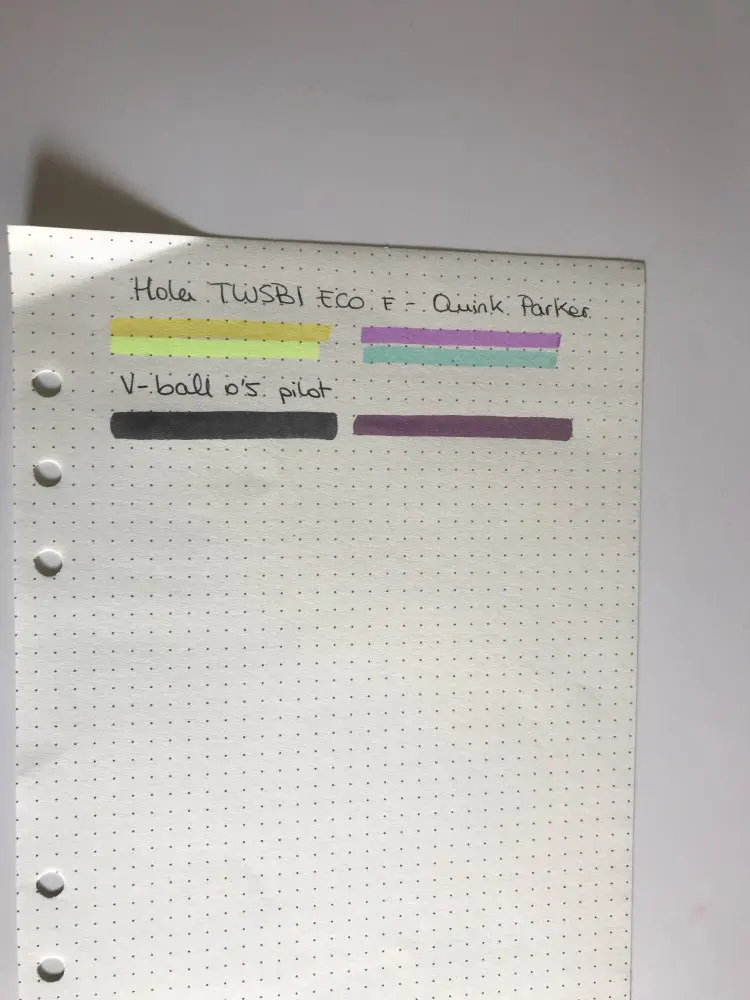 Hola TWSBI ECO F - Quink Parker
V-ball 0'5 pilot